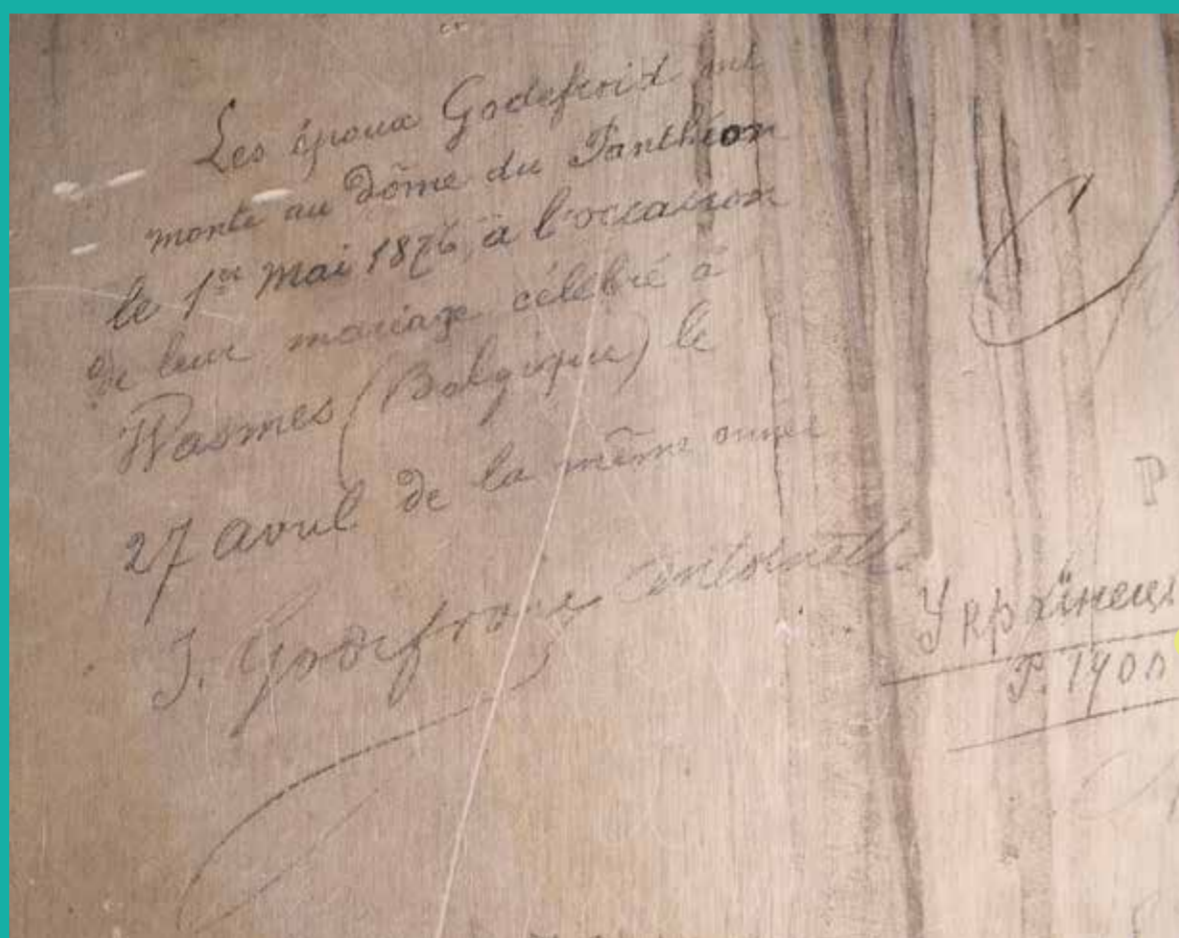 Les époux Godefroid ont
monté au Dôme du Panthéon
le 1er Mai 1876, à l'occasion
de leur mariage célébré à
Wasmes (Belgique) le
27 avril de la même année
J. Godefroid Antoinette
Українець
P. 1900